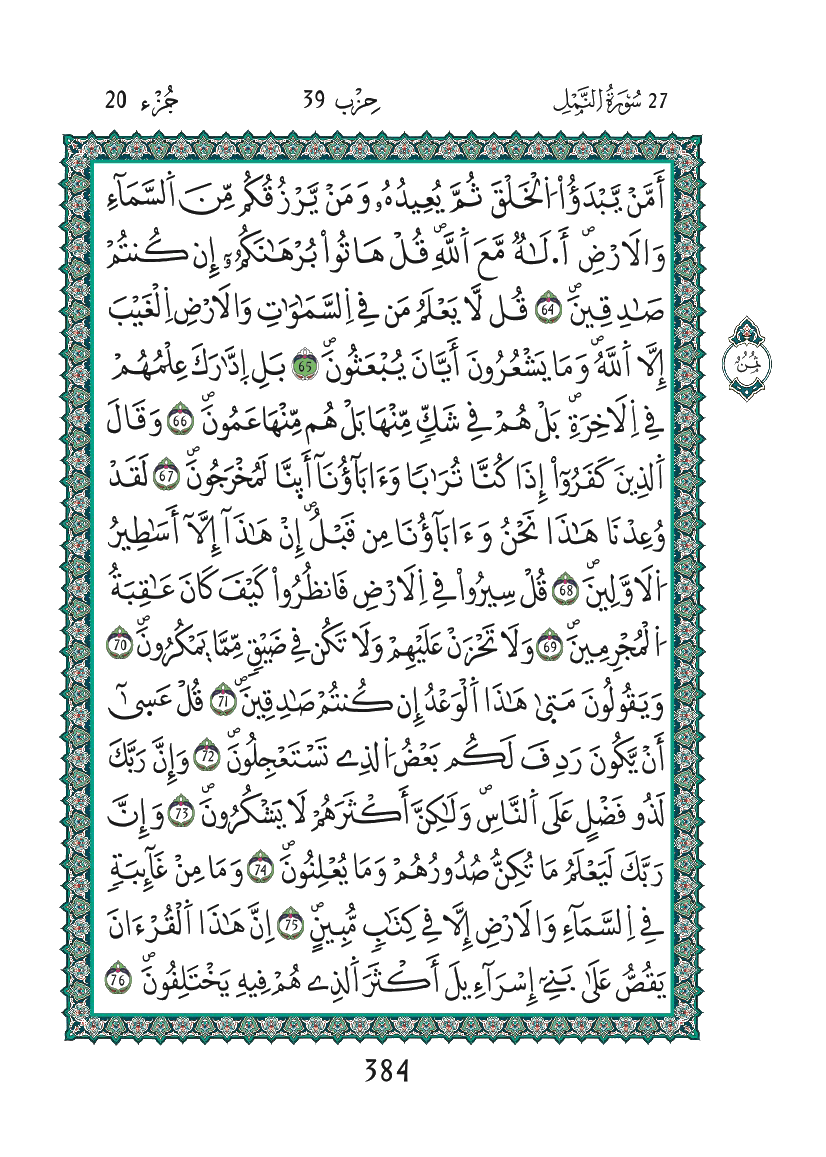 27 سُورَةُ النَّمْلِ حِزْب 39 جُزْء 20
أَمَّنْ يَّبْدَؤُاْ اُ۬لْخَلْقَ ثُمَّ يُعِيدُهُۥ وَمَنْ يَّرْزُقُكُم مِّنَ اَ۬لسَّمَآءِ
وَالَارْضِۖ أَ۟لَٰهٞ مَّعَ اَ۬للَّهِۖ قُلْ هَاتُواْ بُرْهَٰنَكُمُۥٓ إِن كُنتُمْ
صَٰدِقِينَۖ 64 قُل لَّا يَعْلَمُ مَن فِے اِ۬لسَّمَٰوَٰتِ وَالَارْضِ اِ۬لْغَيْبَ
إِلَّا اَ۬للَّهُۖ وَمَا يَشْعُرُونَ أَيَّانَ يُبْعَثُونَۖ 65 بَلِ اِ۪دَّٰرَكَ عِلْمُهُمْ
فِے اِ۬لَاخِرَةِۖ بَلْ هُمْ فِے شَكّٖ مِّنْهَا بَلْ هُم مِّنْهَا عَمُونَۖ 66 وَقَالَ
اَ۬لذِينَ كَفَرُوٓاْ إِذَا كُنَّا تُرَٰبا وَءَابَآؤُنَآ أَى۪نَّا لَمُخْرَجُونَۖ 67 لَقَدْ
وُعِدْنَا هَٰذَا نَحْنُ وَءَابَآؤُنَا مِن قَبْلُۖ إِنْ هَٰذَآ إِلَّآ أَسَٰطِيرُ
اُ۬لَاوَّلِينَۖ 68 قُلْ سِيرُواْ فِے اِ۬لَارْضِ فَانظُرُواْ كَيْفَ كَانَ عَٰقِبَةُ
اُ۬لْمُجْرِمِينَۖ 69 وَلَا تَحْزَنْ عَلَيْهِمْ وَلَا تَكُن فِے ضَيْقٖ مِّمَّا يَمْكُرُونَۖ 70
وَيَقُولُونَ مَت۪يٰ هَٰذَا اَ۬لْوَعْدُ إِن كُنتُمْ صَٰدِقِينَۖ 71 قُلْ عَس۪يٰٓ
أَنْ يَّكُونَ رَدِفَ لَكُم بَعْضُ اُ۬لذِے تَسْتَعْجِلُونَۖ 72 وَإِنَّ رَبَّكَ
لَذُو فَضْلٍ عَلَى اَ۬لنَّاسِۖ وَلَٰكِنَّ أَكْثَرَهُمْ لَا يَشْكُرُونَۖ 73 وَإِنَّ
رَبَّكَ لَيَعْلَمُ مَا تُكِنُّ صُدُورُهُمْ وَمَا يُعْلِنُونَۖ 74 وَمَا مِنْ غَآئِبَةٖ
فِے اِ۬لسَّمَآءِ وَالَارْضِ إِلَّا فِے كِتَٰبٖ مُّبِينٍۖ 75 اِنَّ هَٰذَا اَ۬لْقُرْءَانَ
يَقُصُّ عَلَىٰ بَنِےٓ إِسْرَآءِيلَ أَكْثَرَ اَ۬لذِے هُمْ فِيهِ يَخْتَلِفُونَۖ 76
ثُمُنُ
384